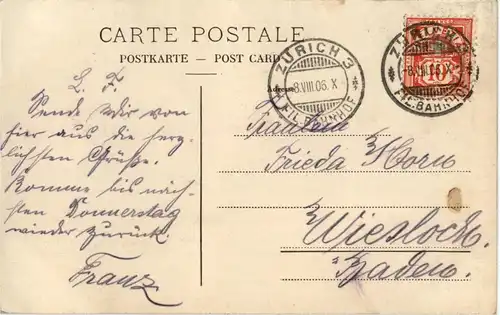 CARTE POSTALE
POSTKARTE — POST CARD
Adresse
ZÜRICH 3
8.VIII.06.X
FIL. BAHNHOF
ZÜRICH 3
8.VIII.06.X
FIL. BAHNHOF
10
L. F.
Sende Dir von
hier aus die herz-
lichsten Grüße.
Komme bis näch-
sten Donnerstag
wieder zurück.
Franz
Fräulein
Frieda Horn
Wiesloch.
Baden.